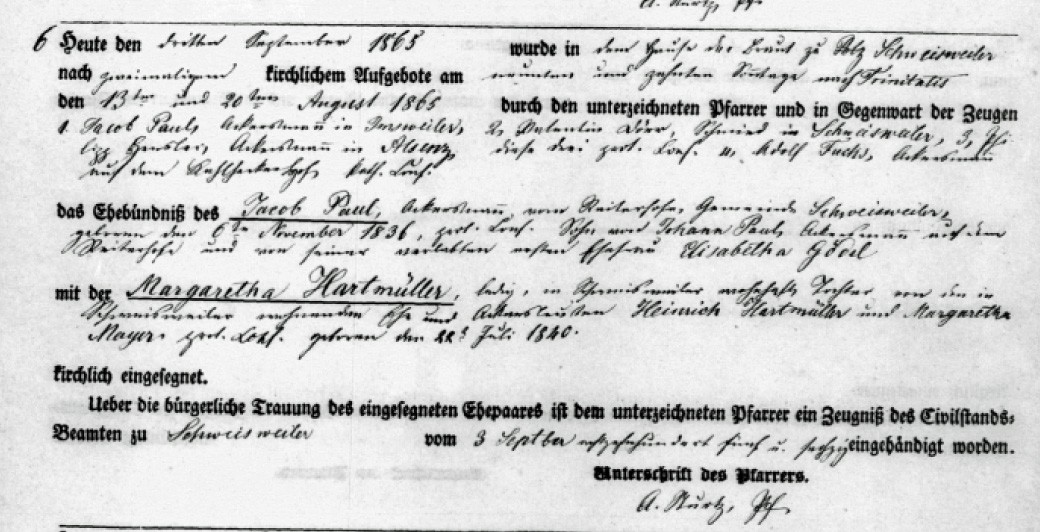 A. Kurtz, Pf
6 Heute den dritten September 1865 wurde in dem Hause der Braut zu Schweisweiler
nach zweimaligem kirchlichem Aufgebote am neunten und zehnten Sontage nach Trinitatis
den 13ten und 20ten August 1865 durch den unterzeichneten Pfarrer und in Gegenwart der Zeugen
1. Jacob Paul, Ackersmann in Imsweiler, 2, Valentin Dörr, Schmied in Schweisweiler, 3, Phi-
lipp Hensler, Ackersmann in Alsenz, diese drei prot. Conf. u. Adolf Fuchs, Ackersmann
auf dem kath. Conf.
das Ehebündniß des Jacob Paul, Ackersmann vom Reiterhofe, Gemeinde Schweisweiler,
geboren den 6ten November 1836, prot. Conf. Sohn von Johann Paul, Ackersmann auf dem
Reiterhofe und von seiner verlebten ersten Ehefrau Elisabetha
mit der Margaretha Hartmüller, ledig, in Schweisweiler wohnhafte Tochter von den in
Schweisweiler wohnenden Ehe und Ackersleuten Heinrich Hartmüller und Margaretha
Mayer, prot. Conf. geboren den 22t Juli 1840.
kirchlich eingesegnet.
Ueber die bürgerliche Trauung des eingesegneten Ehepaares ist dem unterzeichneten Pfarrer ein Zeugniß des Civilstands-
Beamten zu Schweisweiler vom 3 Septber achtzehnhundert fünf u. sechzig eingehändigt worden.
Unterschrift des Pfarrers.
A. Kurtz, Pf.